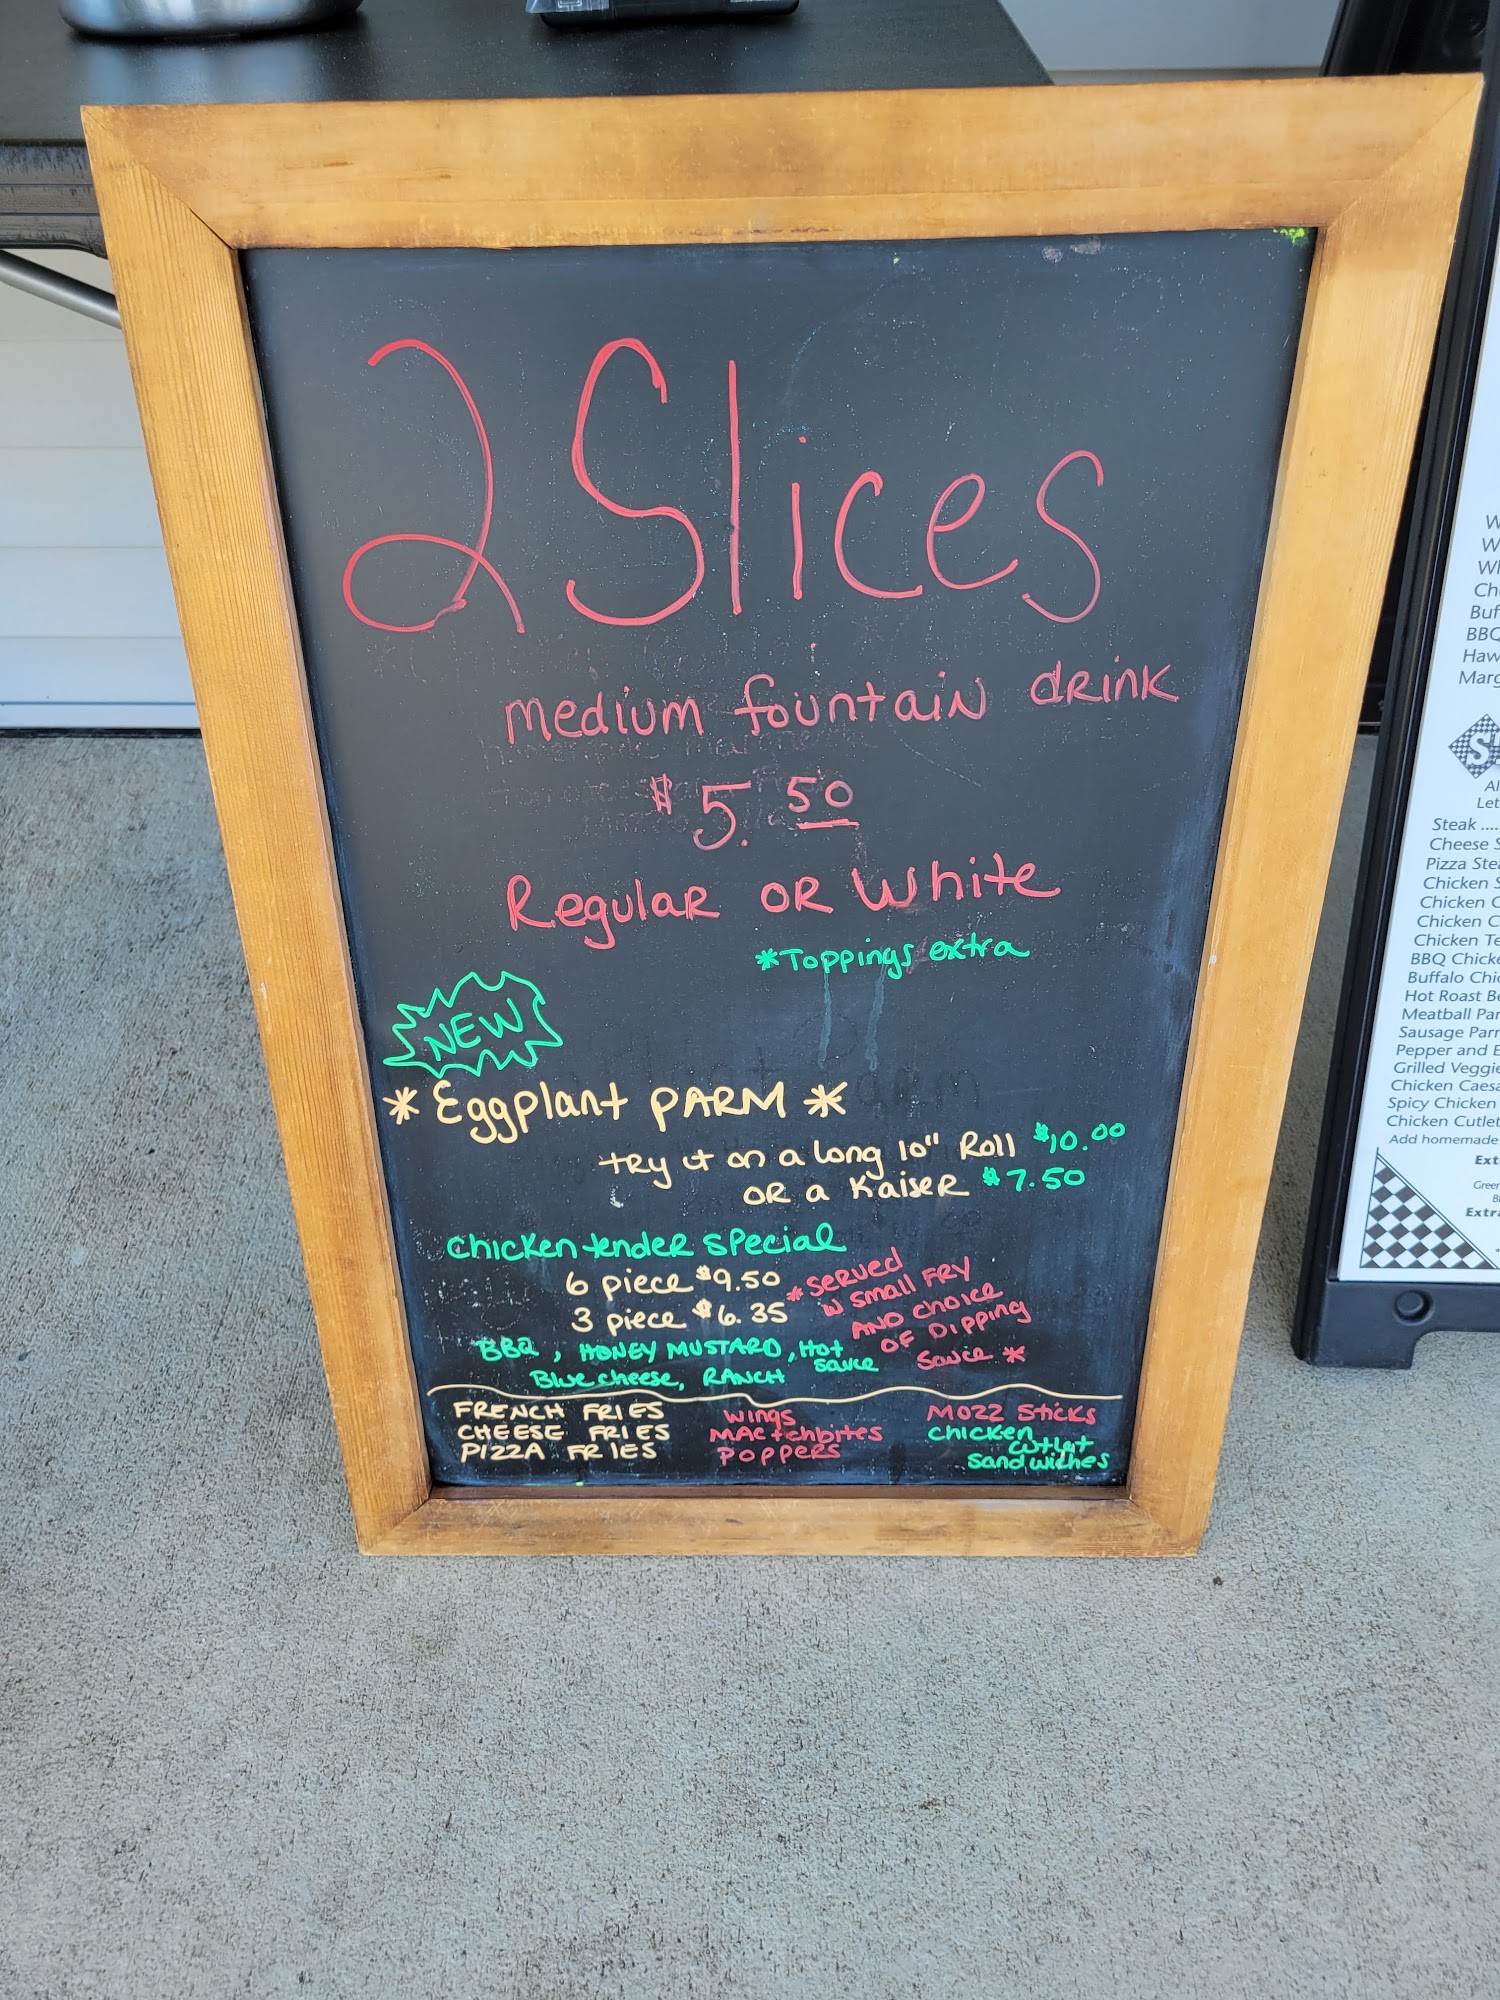 2 Slices
medium fountain drink
$5.50
Regular OR White
*Toppings extra
NEW
* Eggplant PARM *
try it on a long 10" Roll $10.00
OR a Kaiser $7.50
chicken tender special
6 piece $9.50
3 piece $6.35
*SERVED
w small FRY
AND choice
OF DIPPING
Sauce *
BBQ, HONEY MUSTARD, Hot sauce
Blue cheese, RANCH
FRENCH FRIES
CHEESE FRIES
PIZZA FRIES
wings
MAC + chbites
POPPERS
MOZZ Sticks
chicken
cutlet
sandwiches
W
W
Wh
Ch
Buf
BBQ
Haw
Marg
S
Al
Let
Steak ....
Cheese S
Pizza Stea
Chicken S
Chicken C
Chicken C
Chicken Te
BBQ Chicke
Buffalo Chic
Hot Roast Be
Meatball Par
Sausage Parr
Pepper and E
Grilled Veggie
Chicken Caesa
Spicy Chicken
Chicken Cutlet
Add homemade
Ext
Green
Extra